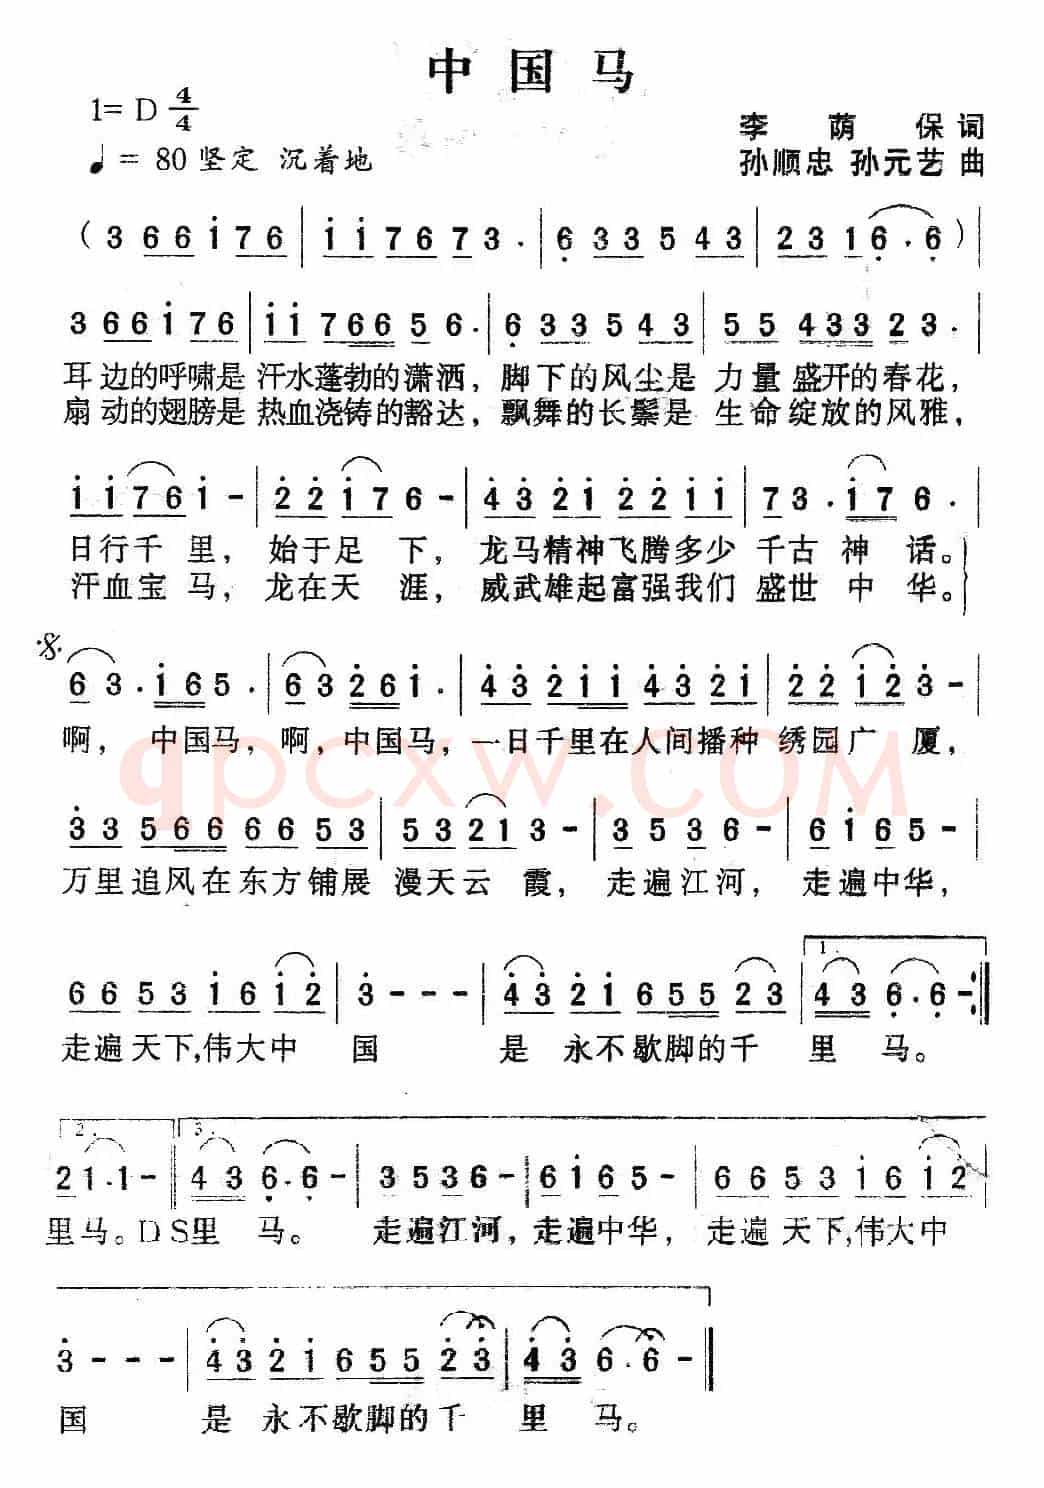 中国马
1= D 4/4
♩= 80 坚定 沉着地
李荫保词
孙顺忠 孙元艺 曲
( 3 6 6 i 7 6 | i i 7 6 7 3 . | 6 3 3 5 4 3 | 2 3 1 6 . 6 ) |
3 6 6 i 7 6 | i i 7 6 6 5 6 . | 6 3 3 5 4 3 | 5 5 4 3 3 2 3 . |
耳边的呼啸是 汗水蓬勃的潇洒，脚下的风尘是 力量盛开的春花，
扇动的翅膀是 热血浇铸的豁达，飘舞的长鬃是 生命绽放的风雅，
i i 7 6 i - | 2 2 i 7 6 - | 4 3 2 i 2 2 i i | 7 3 . i 7 6 . |
日行千里，始于足下，龙马精神飞腾多少 千古神话。
汗血宝马，龙在天涯，威武雄起富强我们 盛世中华。
6 3 . i 6 5 . | 6 3 2 6 i . | 4 3 2 i i 4 3 2 i | 2 2 i 2 3 - |
啊，中国马，啊，中国马，一日千里在人间播种 绣园广厦，
qpcxw.COM
3 3 5 6 6 6 6 5 3 | 5 3 2 1 3 - | 3 5 3 6 - | 6 i 6 5 - |
万里追风在东方铺展 漫天云霞，走遍江河，走遍中华，
1.
6 6 5 3 i 6 i 2 | 3 - - - | 4 3 2 i 6 5 5 2 3 | 4 3 6 . 6 - :||
走遍天下,伟大中 国 是永不歇脚的千 里 马。
2. 3.
2 1 . 1 - || 4 3 6 . 6 - | 3 5 3 6 - | 6 i 6 5 - | 6 6 5 3 i 6 i 2 |
里马。D S里 马。 走遍江河，走遍中华，走遍天下,伟大中
3 - - - | 4 3 2 i 6 5 5 2 3 | 4 3 6 . 6 - ||
国 是永不歇脚的千 里 马。